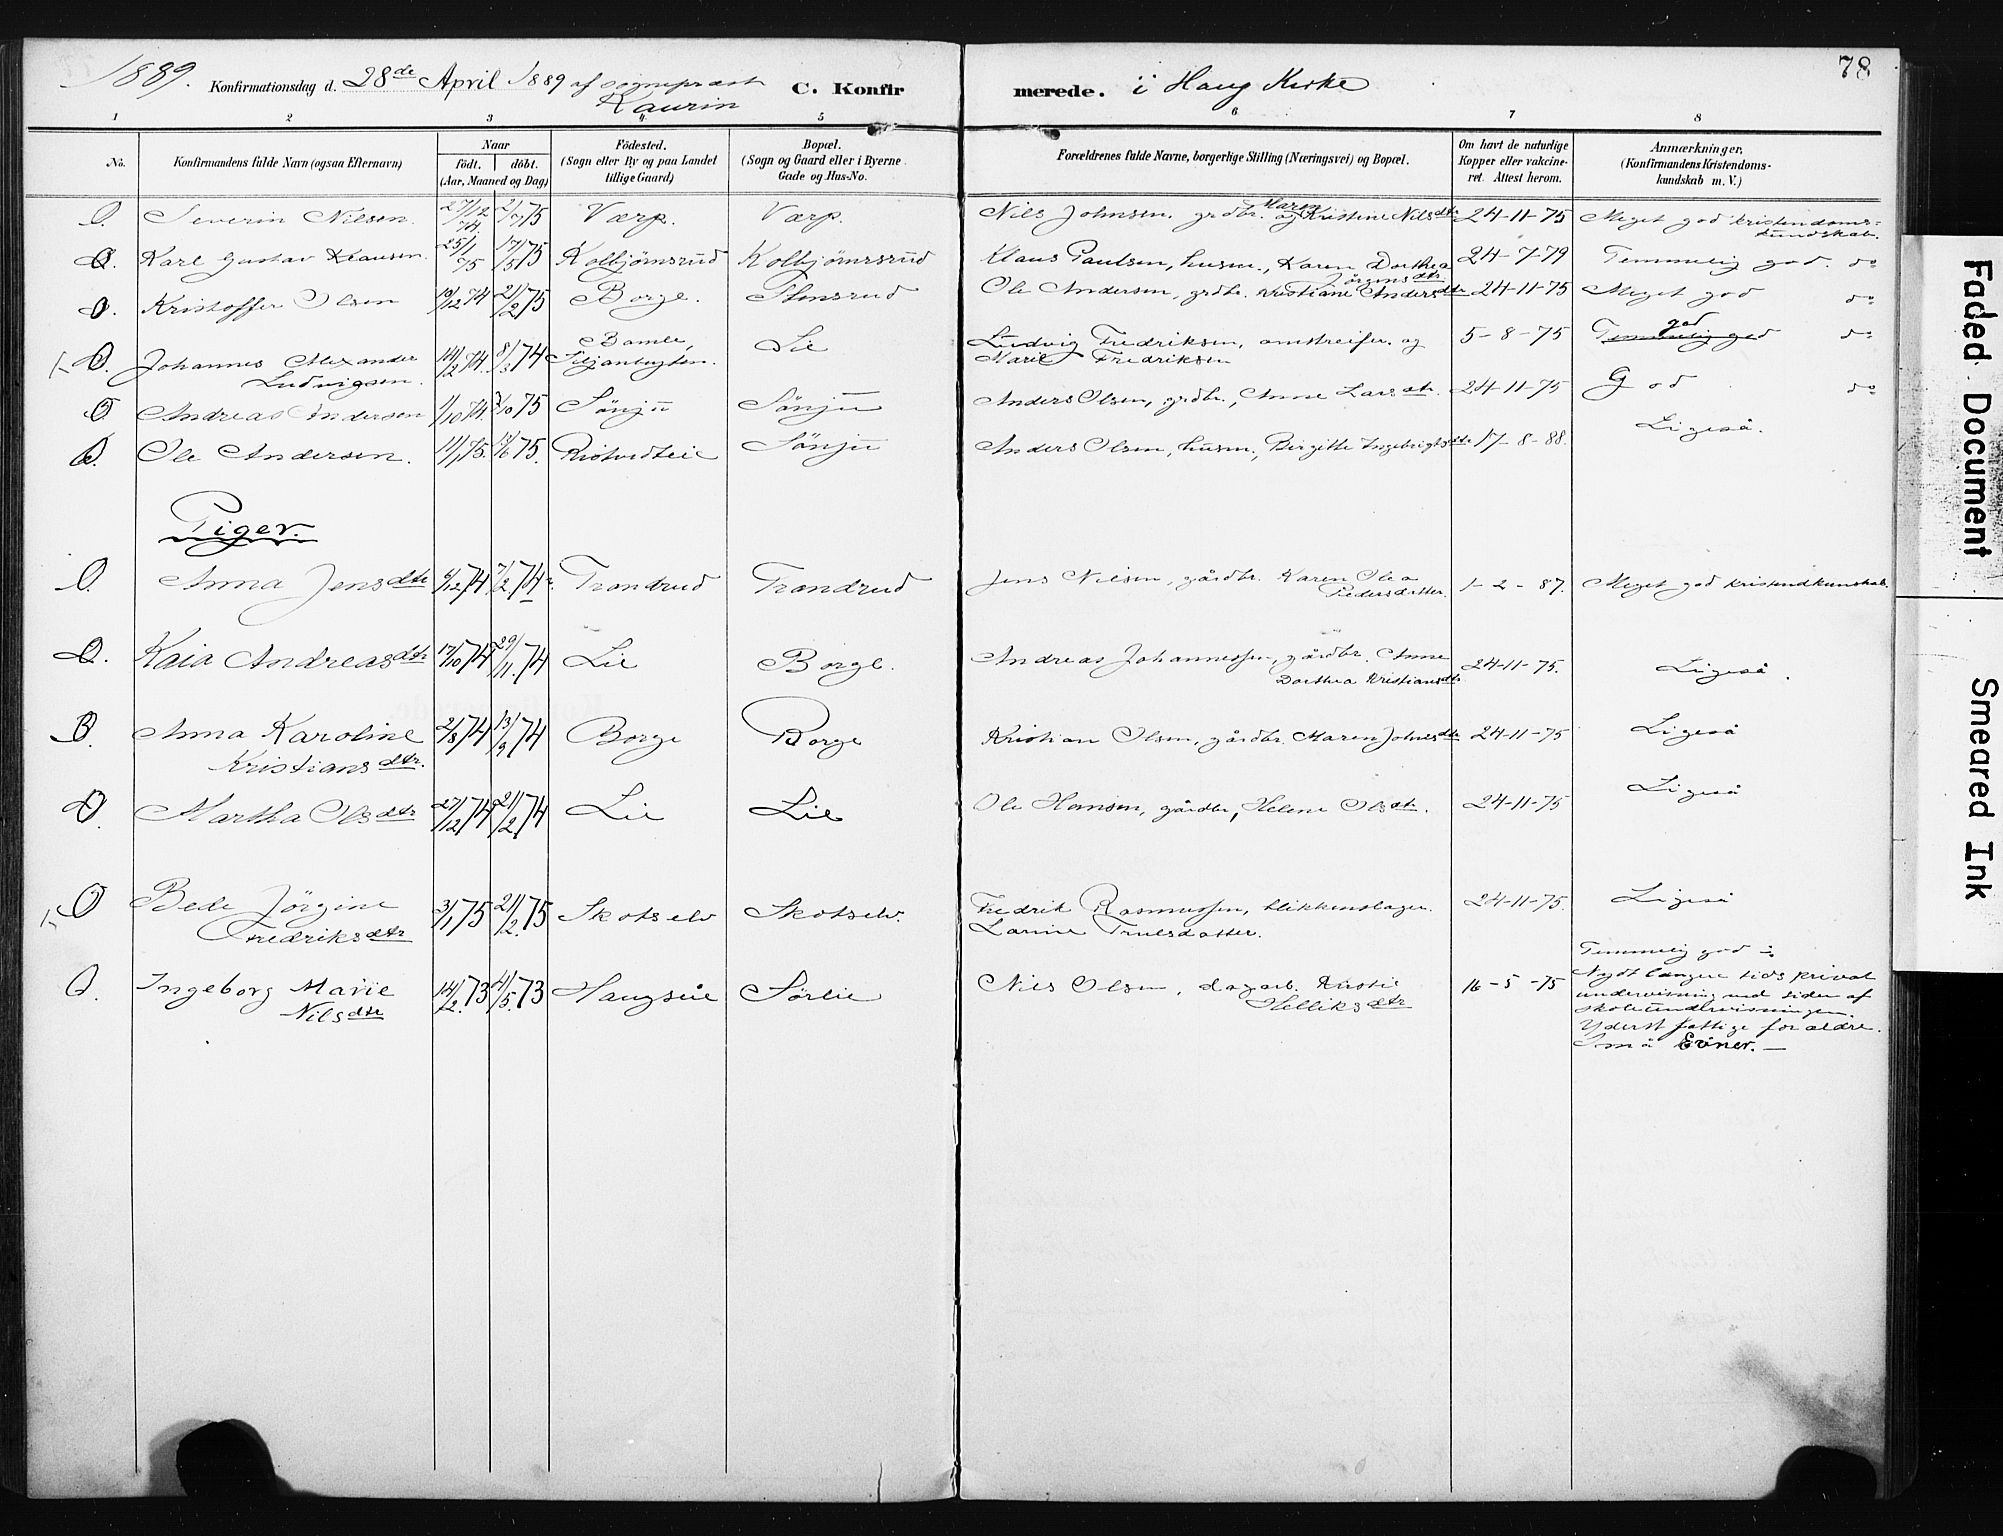 1889. Konfirmationsdag d. 28de April 1889 af sognepræst Kaurin C. Konfirmerede. i Haug Kirke 78
1 2 3 4 5 6 7 8
No. Konfirmandens fulde Navn (ogsaa Efternavn) Naar födt. döbt. (Aar, Maaned og Dag) Födested. (Sogn eller By og paa Landet tillige Gaard) Bopæl. (Sogn og Gaard eller i Byerne Gade og Hus-No. Forældrenes fulde Navne, borgerlige Stilling (Næringsvei) og Bopæl. Om havt de naturlige Kopper eller vakcineret. Attest herom. Anmærkninger, (Konfirmandens Kristendomskundskab m. V.)
Severin Nilsen. 27/12 74. 2/7 75 Værp. Værp. Nils Johnsen. grdbr. og Maren Kristine Nilsdtr 24-11-75 Meget god kristendomskundskab.
Karl Gustav Klausen 25/1 75 17/5 75 Kolbjörnsrud Kolbjörnsrud Klaus Paulsen, husm., Karen Dorthea Jörgensdtr. 24-7-79 Temmelig god. do
Kristoffer Olsen 10/12 74 21/2 75 Borge. Stensrud Ole Andersen, grdbr. Kristiane Andersdtr 24-11-75 Meget god do
Johannes Alexander Ludvigsen. 14/2 74. 8/3 74 Bamle, Lie Ludvig Fredriksen, omstreifer. og Marie Fredriksen 5-8-75 Temmelig god god do
Andreas Andersen 1/10 74. 3/10 75 Sönju Sönju Anders Olsen, grdbr., Anne Larsdtr. 24-11-75 God do
Ole Andersen. 11/1 75. 13/6 75. Sönju Anders Olsen, husm., Birgitte Ingebrigtsdtr 17-8-88. Ligeså.
Piger.
Anna Jensdtr 6/12 74 7/2 74 Trondrud Trondrud Jens Nilsen, gårdbr. Karen Olea Pedersdatter. 1-2-87. Meget god kristendkunskab.
Kaia Andreasdtr 17/10 74 29/11. 74 Lie Borge. Andreas Johannessen, gårdbr. Anne Dorthea Kristiansdtr 24-11-75. Ligeså.
Anna Karoline Kristiansdtr. 2/8 74 13/9 74 Borge Borge Kristian Olsen, gårdbr. Maren Johnsdtr 24-11-75 Ligeså
Martha Olsdtr 27/12 74 21/2 74 Lie Lie Ole Hansen, gårdbr, Helene Olsdtr. 24-11-75 Ligeså
Bede Jörgine Fredriksdtr 3/1 75 21/2. 75 Skotselv Skotselv. Fredrik Rasmussen, blikkenslager. Larine Trulsdatter. 24-11-75. Ligeså
Ingeborg Marie Nilsdtr 14/2. 73 4/5. 73 Sörlie Nils Olsen, dagarb. Kristi Helliksdtr 16-5-75 Temmelig god
Nydt længere tids privat
undervisning ved siden af
skoleundervisningen.
Yderst fattige forældre.
Små Evner. —
Faded Document
Smeared Ink